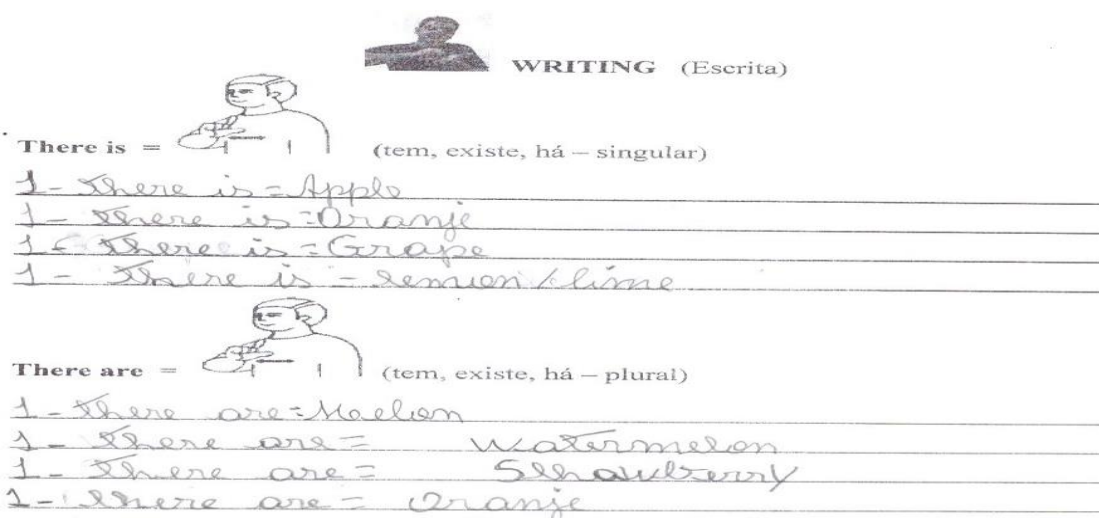 WRITING (Escrita)
There is = (tem, existe, há – singular)
1- There is = Apple
1- There is = Oranje
1- There is = Grape
1- There is = lemion / lime
There are = (tem, existe, há – plural)
1- There are = Maelon
1- There are = Watermelon
1- There are = Slhawberry
1- There are = Oranje